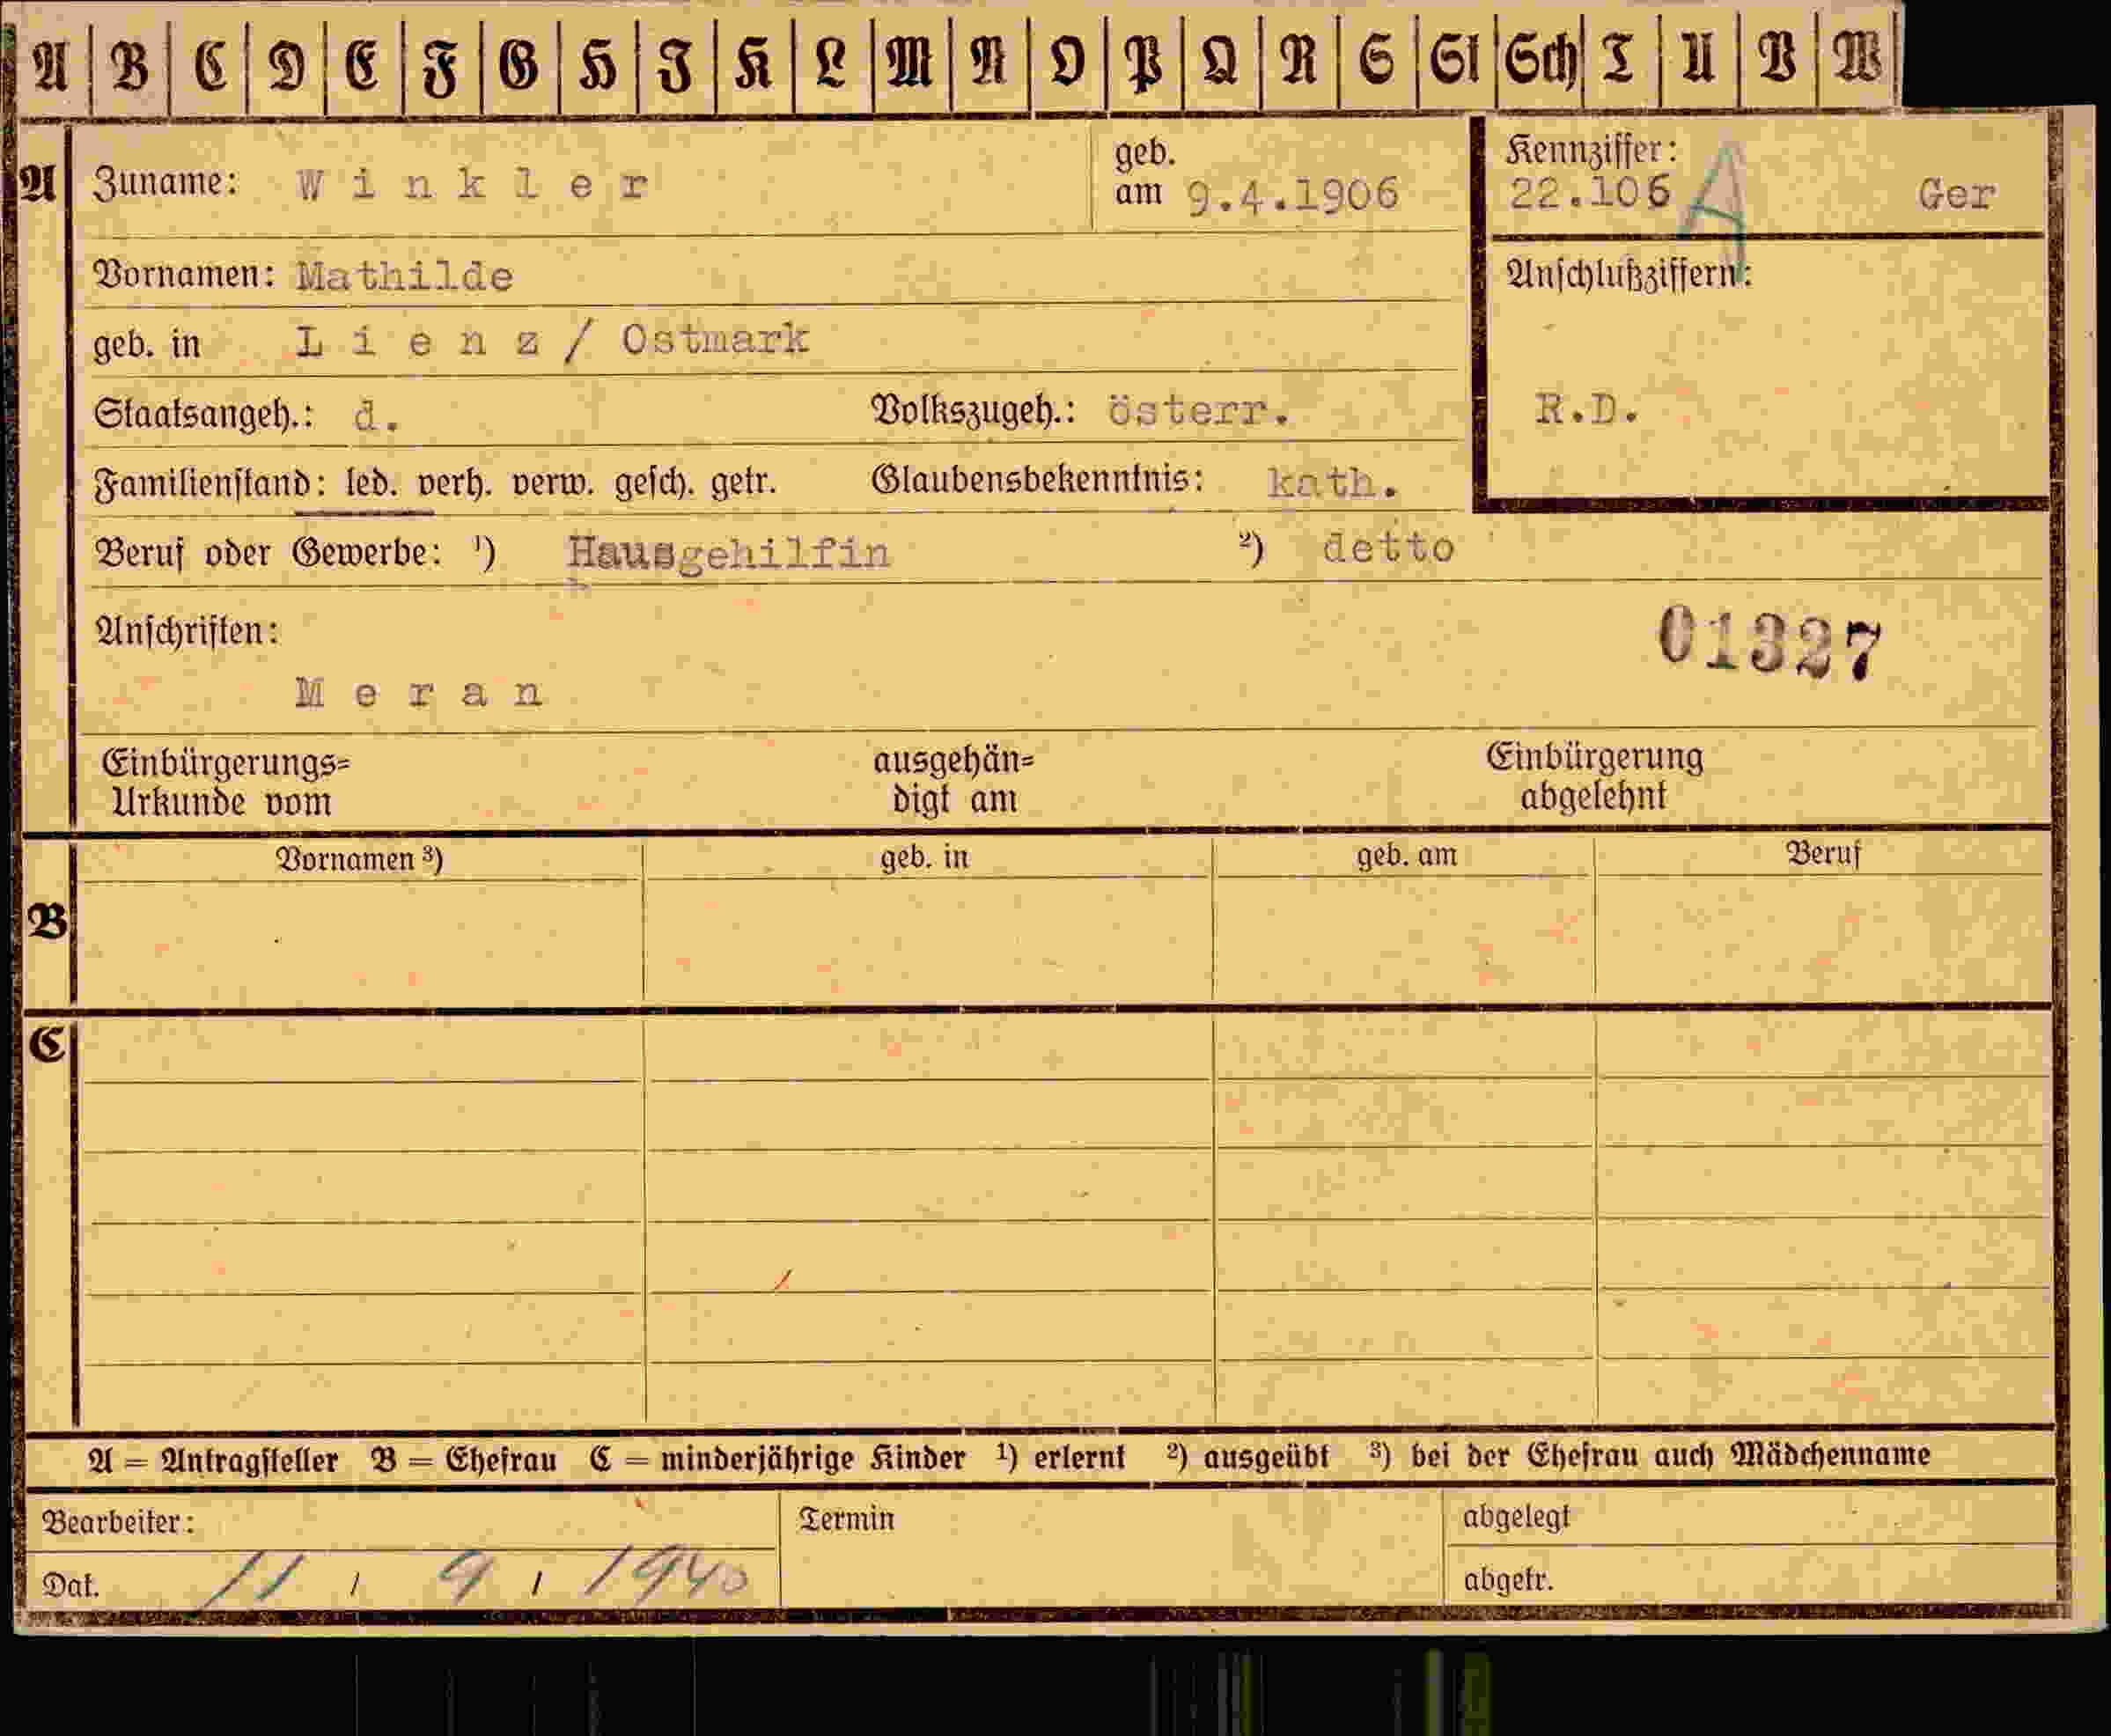 A B C D E F G H I K L M N O P Q R S St Sch T U V W
A Zuname: Winkler geb. am 9.4.1906
Kennziffer: 22.106 A Ger
Vornamen: Mathilde
Anschlußziffern:
geb. in Lienz / Ostmark
Staatsangeh.: d. Volkszugeh.: österr.
R.D.
Familienstand: led. verh. verw. gesch. getr. Glaubensbekenntnis: kath.
Beruf oder Gewerbe: ¹) Hausgehilfin ²) detto
Anschriften:
01327
Meran
Einbürgerungs= ausgehän= Einbürgerung
Urkunde vom digt am abgelehnt
Vornamen ³) geb. in geb. am Beruf
B
C
A = Antragsteller B = Ehefrau C = minderjährige Kinder ¹) erlernt ²) ausgeübt ³) bei der Ehefrau auch Mädchenname
Bearbeiter: Termin abgelegt
Dat. 11 / 9 / 1940 abgetr.